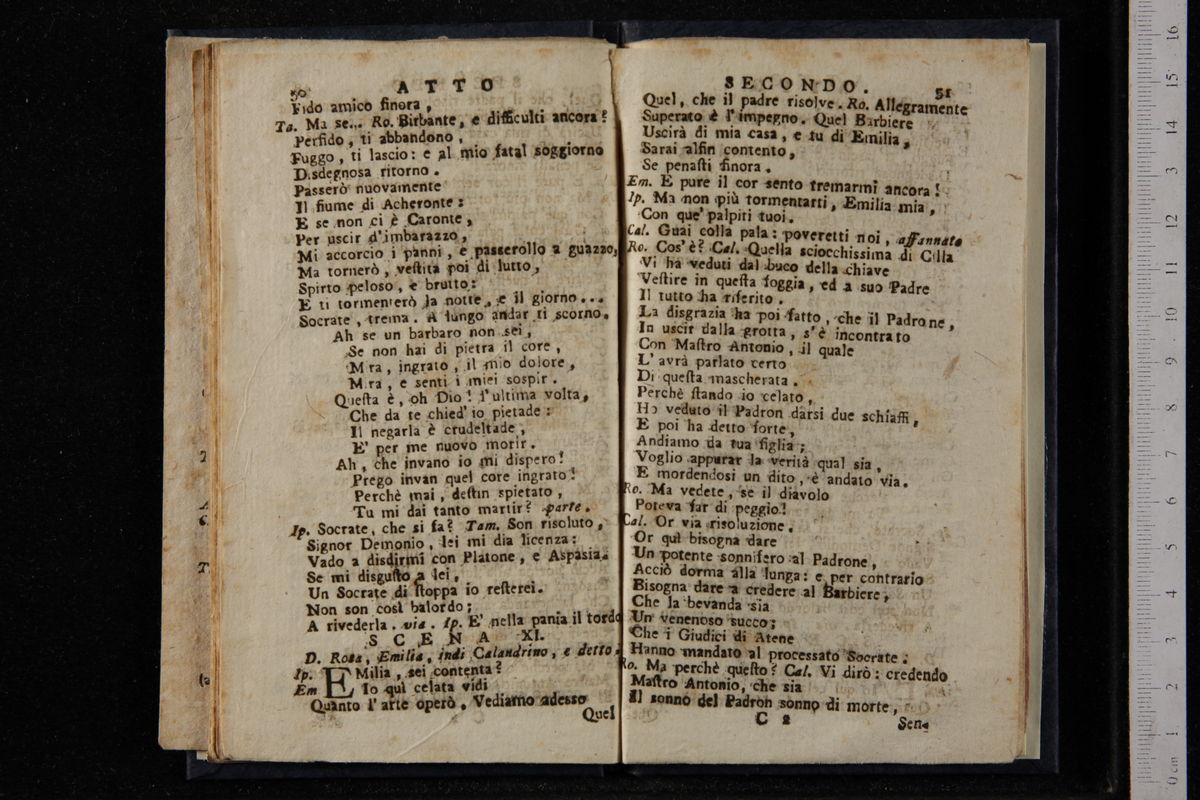 50
ATTO
Fido amico finora,
Ta. Ma se... Ro. Birbante, e difficulti ancora?
Perfido, ti abbandono,
Fuggo, ti lascio: e al mio fatal soggiorno
Disdegnosa ritorno.
Passerò nuovamente
Il fiume di Acheronte:
E se non ci è Caronte,
Per uscir d'imbarazzo,
Mi accorcio i panni, e passerollo a guazzo,
Ma tornerò, veſtita poi di lutto,
Spirto peloso, e brutto:
E ti tormenterò la notte, e il giorno...
Socrate, trema. A lungo andar ti scorno.
Ah se un barbaro non sei,
Se non hai di pietra il core,
Mira, ingrato, il mio dolore,
Mira, e senti i miei sospir.
Queſta è, oh Dio! l'ultima volta,
Che da te chied' io pietade:
Il negarla è crudeltade,
E' per me nuovo morir.
Ah, che invano io mi dispero!
Prego invan quel core ingrato!
Perchè mai, deſtin spietato,
Tu mi dai tanto martir? parte.
Ip. Socrate, che si fa? Tam. Son risoluto,
Signor Demonio, lei mi dia licenza:
Vado a disdirmi con Platone, e Aspasia.
Se mi disguſto a lei,
Un Socrate di ſtoppa io reſterei.
Non son così balordo;
A rivederla. via. Ip. E' nella pania il tordo
SCENA XI.
D. Rosa, Emilia, indi Calandrino, e detto.
Ip. EMilia, sei contenta?
Em Io quì celata vidi
Quanto l'arte operò. Vediamo adesso
Quel
SECONDO.
51
Quel, che il padre risolve. Ro. Allegramente
Superato è l'impegno. Quel Barbiere
Uscirà di mia casa, e tu di Emilia,
Sarai alfin contento,
Se penaſti finora.
Em. E pure il cor sento tremarmi ancora!
Ip. Ma non più tormentarti, Emilia mia,
Con que' palpiti tuoi.
Cal. Guai colla pala: poveretti noi, affannato
Ro. Cos'è? Cal. Quella sciocchissima di Cilla
Vi ha veduti dal buco della chiave
Veſtire in queſta foggia, ed a suo Padre
Il tutto ha riferito.
La disgrazia ha poi fatto, che il Padrone,
In uscir dalla grotta, s'è incontrato
Con Maſtro Antonio, il quale
L'avrà parlato certo
Di queſta mascherata.
Perchè ſtando io celato,
Ho veduto il Padron darsi due schiaffi,
E poi ha detto forte,
Andiamo da tua figlia;
Voglio appurar la verità qual sia,
E mordendosi un dito, è andato via.
Ro. Ma vedete, se il diavolo
Poteva far di peggio!
Cal. Or via risoluzione.
Or quì bisogna dare
Un potente sonnifero al Padrone,
Acciò dorma alla lunga: e per contrario
Bisogna dare a credere al Barbiere,
Che la bevanda sia
Un venenoso succo;
Che i Giudici di Atene
Hanno mandato al processato Socrate:
Ro. Ma perchè queſto? Cal. Vi dirò: credendo
Maſtro Antonio, che sia
Il sonno del Padron sonno di morte,
C 2
Sen-